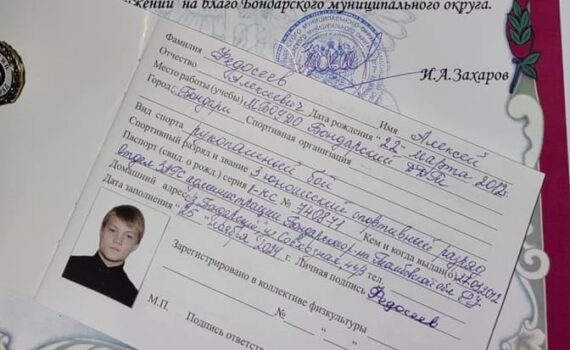 жении на благо Бондарского муниципального округа.
И.А.Захаров
Фамилия Федосеев Имя Алексей
Отчество Алексеевич Дата рождения "22" марта 2012г.
Место работы (учебы) МБОУДО Бондарский
Город с. Бондари Спортивная организация
Вид спорта рукопашный бой
Спортивный разряд и звание 3 юношеский спортивный разряд
Паспорт (свид. о рожд.) серия I-КС № 740871 Кем и когда выдан(о)
отдел ЗАГС администрации Бондарского р-на Тамбовской обл.
Домашний адрес с. Бондари, ул. Совхозная тел.
Дата заполнения "25" ноября 2024 г. Личная подпись Федосеев
Зарегистрировано в коллективе физкультуры
№ " "
М.П.
Подпись ответств